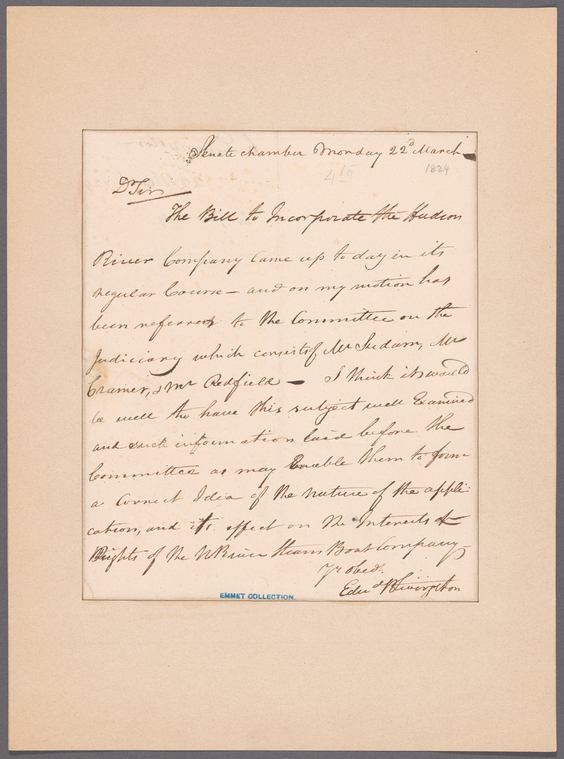 Senate chamber Monday 22d March
1824
4to
Dr Sir
The Bill to Incorporate the Hudson
River Company came up to day in its
regular Course — and on my motion has
been refered to the Committee on the
Judiciary which consists of Mr Sudam, Mr
Cramer, & Mr Redfield — I think it would
be well to have this subject well Examined
and such information laid before the
Committee as may Enable them to form
a Correct Idea of the nature of the appli-
cation, and its effect on the Interests &
Rights of the N River Steam Boat Company
Yr obed.
Edwd P Livingston
EMMET COLLECTION.